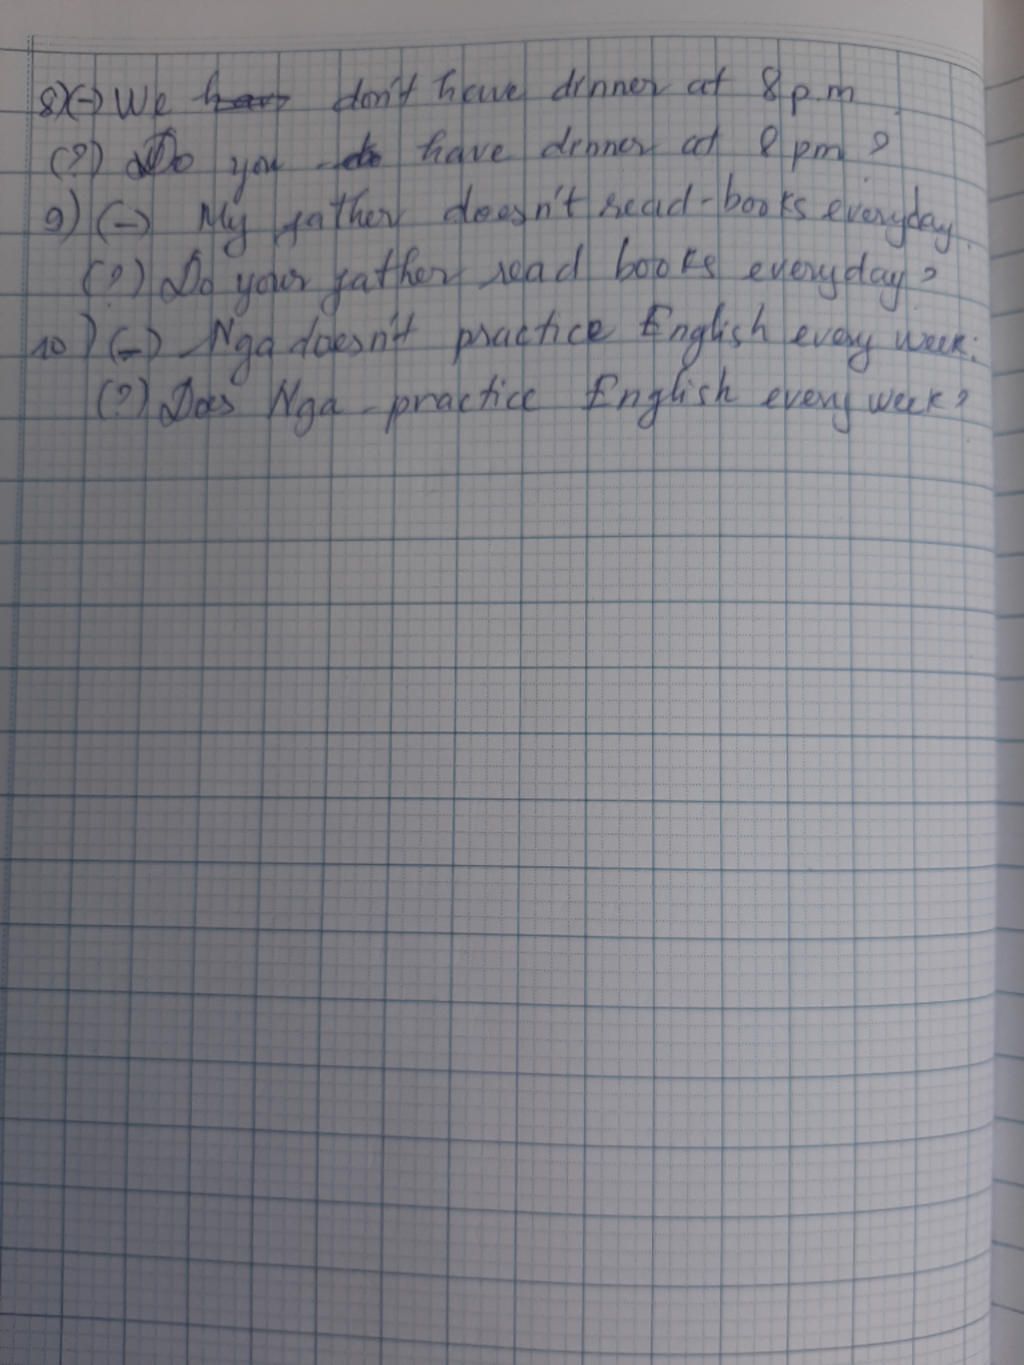 8) (-) We don't have dinner at 8 p.m.
(?) Do you have dinner at 8 pm?
9) (-) My father doesn't read books everyday.
(?) Do your father read books everyday?
10) (-) Nga doesn't practice English every week.
(?) Does Nga practice English every week?